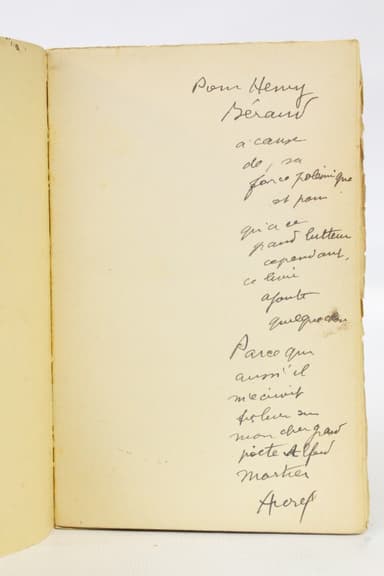 Pour Henry
Béraud
a cause
de, sa
force polémique
et pour
qu'a ce
grand lutteur
cependant,
ce livre
ajoute
Parce que
aussi il
m'écrivit
mon cher grand
poète Alfred
Mortier